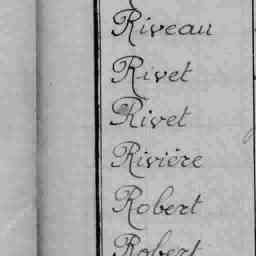 Riveau
Rivet
Rivet
Rivière
Robert
Robert